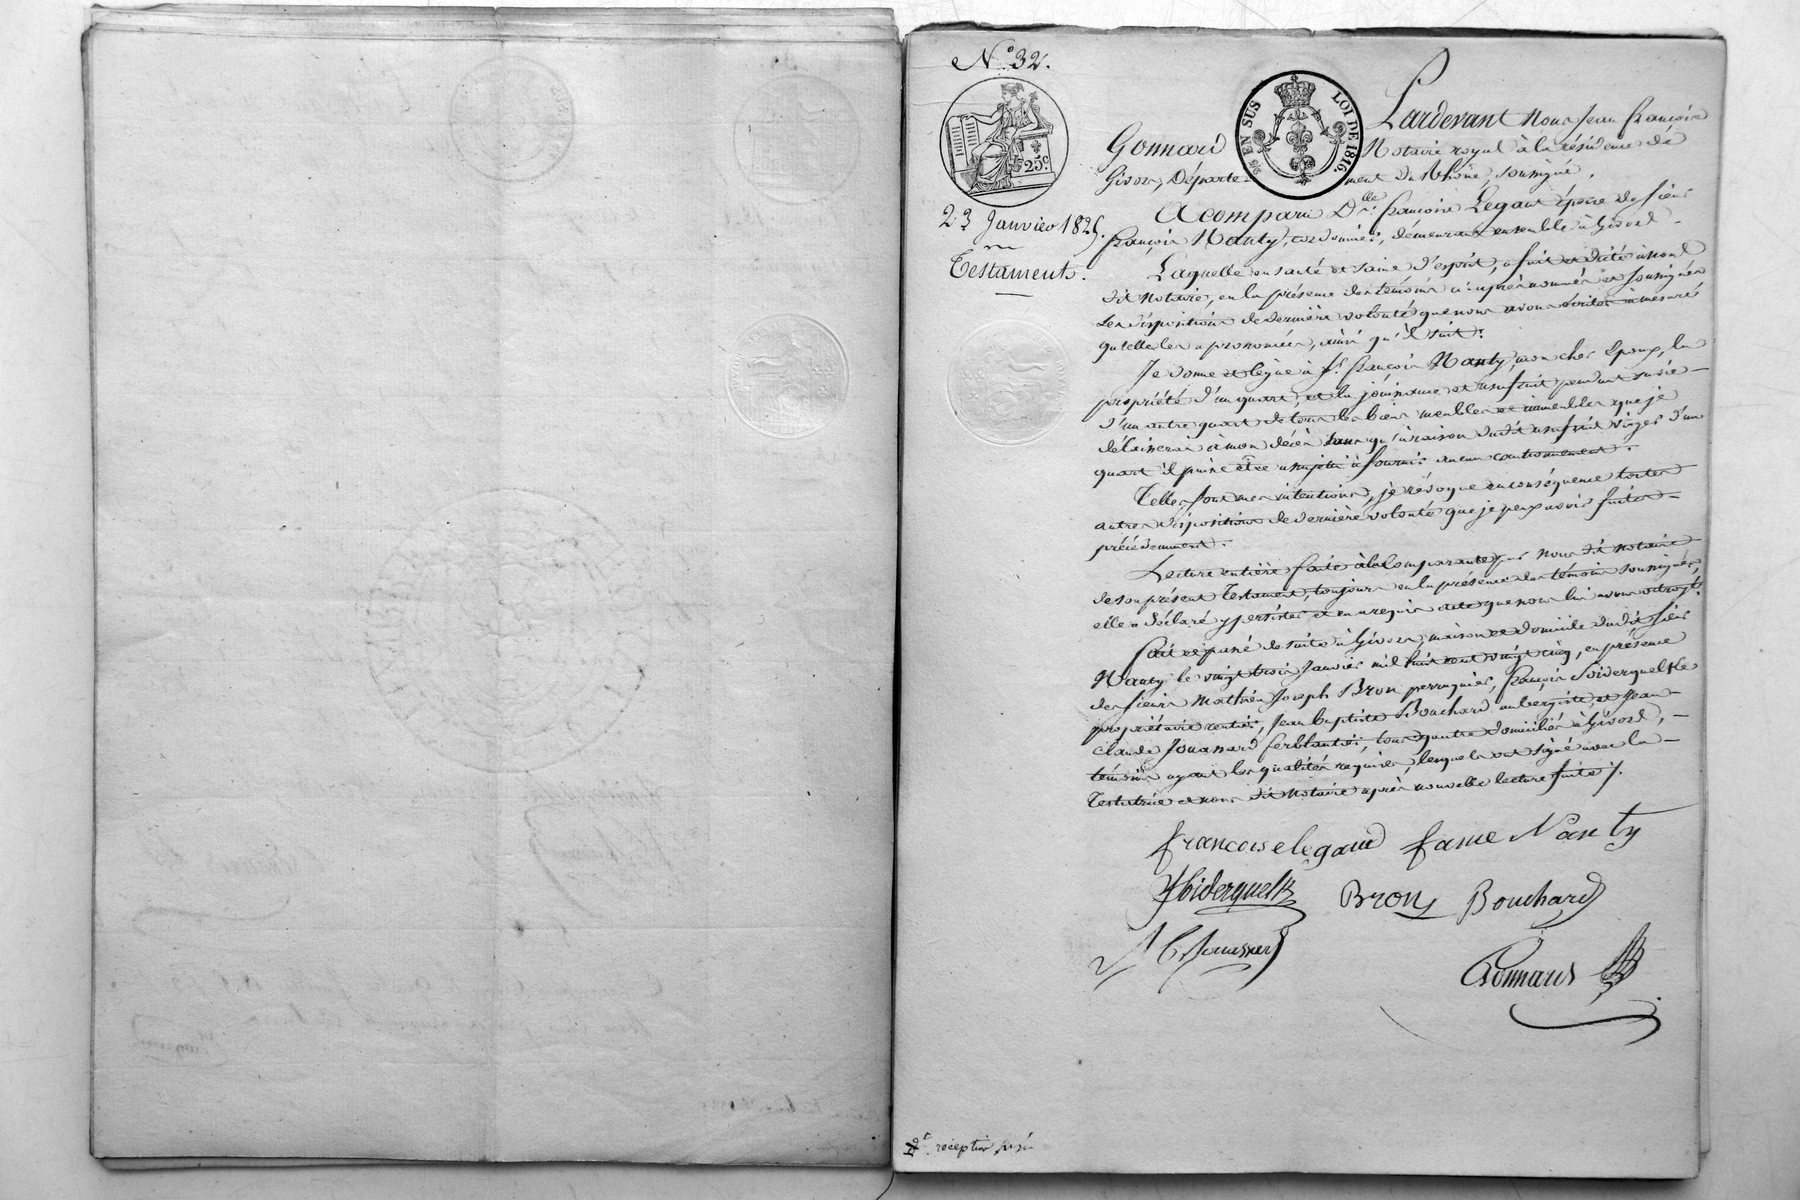 N.° 32.
25c.
96 EN SUS LOI DE 1816.
23 Janvier 1825.
Testament.
Pardevant Nous Jean François
Gonnard Notaire royal à la résidence de
Givors, Départe- ment du Rhône, soussigné.
A comparu D.lle françoise Legaud épouse de sieur
françois Nanty, cordonnier, demeurant ensemble à Givord -
Laquelle en santé et saine d'esprit, a fait et dicté à nous
dit Notaire, en la présence des témoins ci-après nommés et soussignés
les dispositions de dernière volonté que nous avons écrites à mesure
qu'elle les a prononcées, ainsi qu'il suit:
Je donne et lègue à Sr. françois Nanty, mon cher Epoux, la
propriété d'un quart, et la jouissance et usufruit pendant sa vie -
d'un autre quart de tous les biens meubles et immeubles que je
délaisserai à mon décès sans qu'à raison dudit usufruit viager d'un
quart il puisse être assujetti à fournir aucun cautionnement.
Telles sont mes intentions, je révoque en conséquence toutes
autres dispositions de dernière volonté que je peux avoir faites -
précédemment.
Lecture entière faite à la Comparante par nous dit notaire
de son présent Testament, toujours en la présence des témoins soussignés,
elle a déclaré y persister et en a requis acte que nous lui avons octroyé.
fait et passé de suite à Givors, maison et domicile dudit sieur
Nanty le vingt trois Janvier mil huit cent vingt cinq, en présence
des sieurs Mathieu Joseph Bron perruquier, françois Soiderquelk
propriétaire rentier, Jean Baptiste Bouchard aubergiste, et Jean
claude Jouassard ferblantier, tous quatre domiciliés à Givord, -
témoins ayant les qualités requises, lesquels ont signé avec la -
Testatrice et nous dit Notaire après nouvelle lecture faite /.
francoise legaud fame Nanty
Bron Bouchard
J C Jouassard
Gonnard
réception